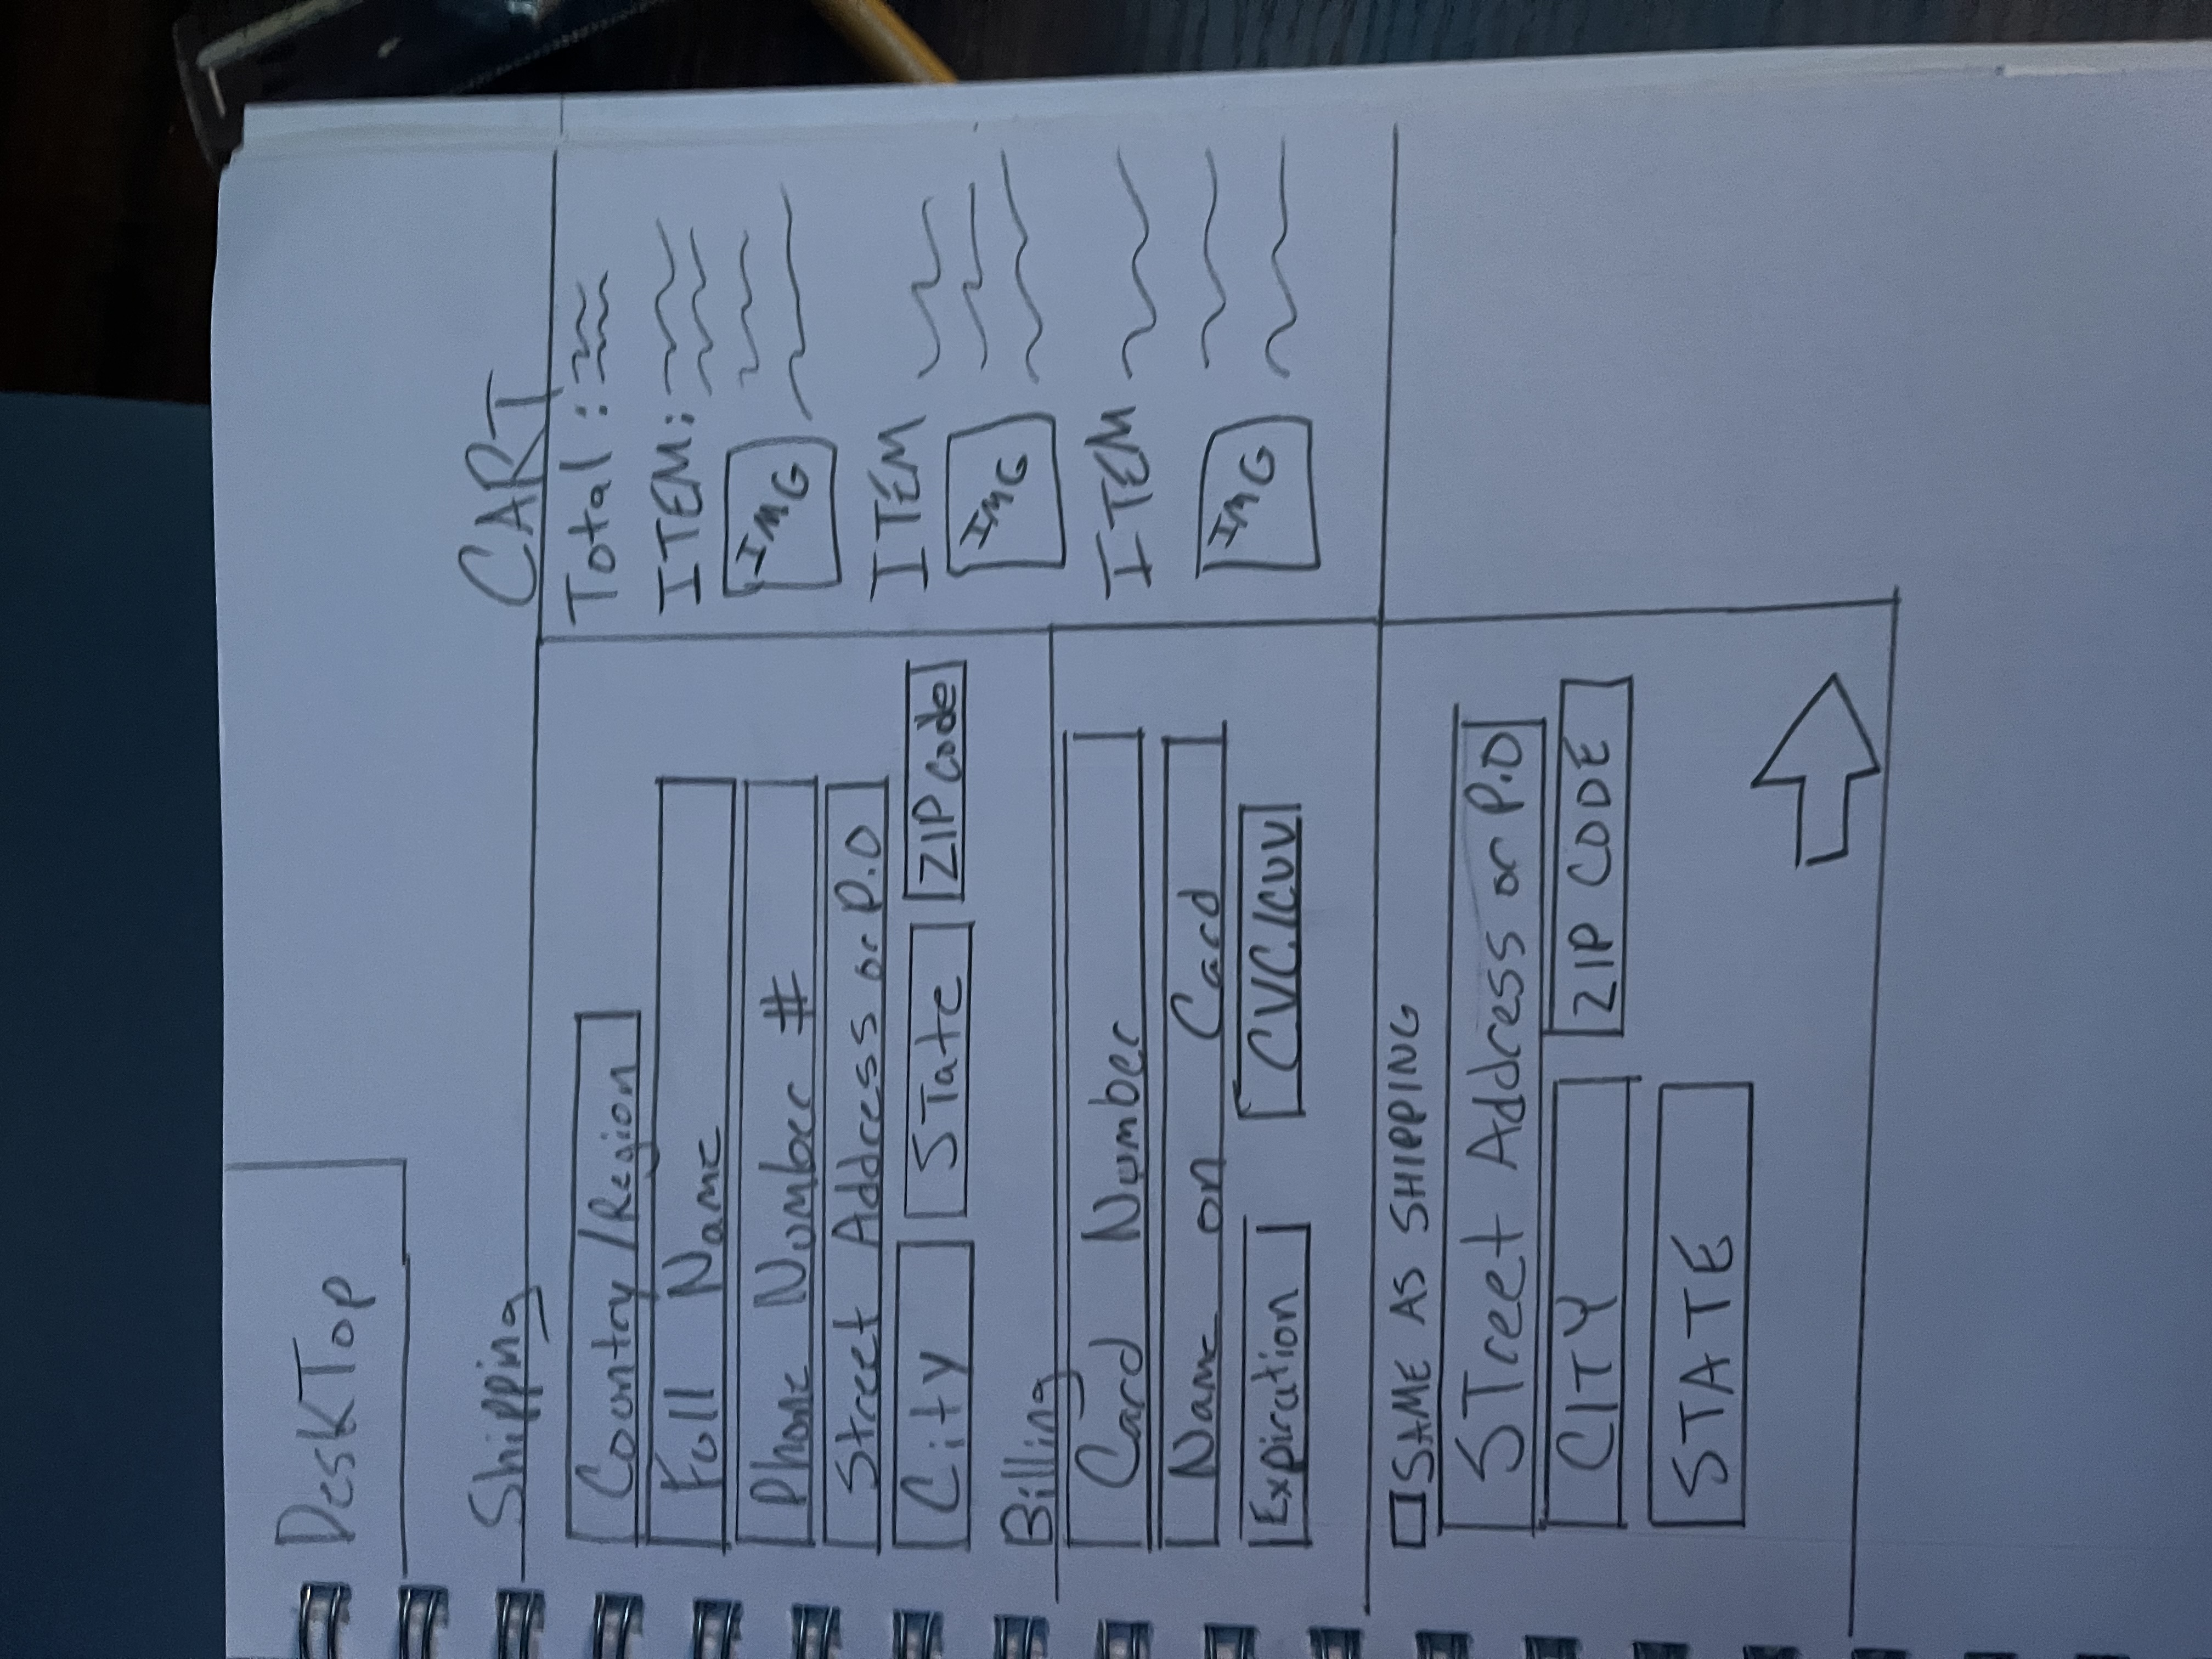 DeskTop
Shipping
Country/Region
Full Name
Phone Number #
Street Address or P.O
City STate ZIP code
Billing
Card Number
Name on Card
Expiration CVC/CVV
SAME AS SHIPPING
STreet Address or P.O
CITY ZIP CODE
STATE
CART
Total:
ITEM:
IMG
ITEM
IMG
ITEM
IMG